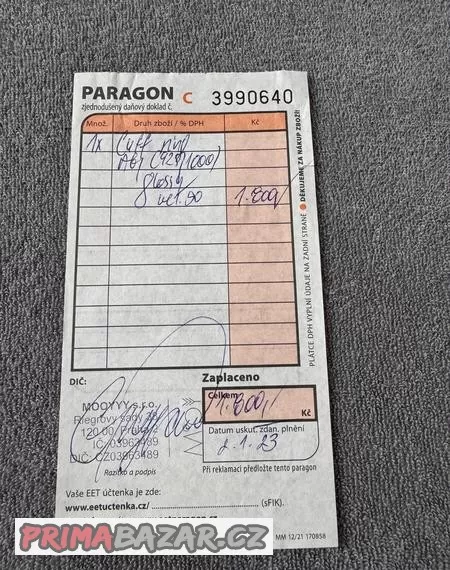 PARAGON C 3990640
zjednodušený daňový doklad č.
Množ. Druh zboží / % DPH Kč
1x Cuff
Ag (925/1000)
glossy
vel. 90 1.800,-
DĚKUJEME ZA NÁKUP ZBOŽÍ!
PLÁTCE DPH VYPLNÍ ÚDAJE NA ZADNÍ STRANĚ
DIČ: Zaplaceno
Celkem
1.800,-
Kč
MOOYYY s.r.o.
Riegrovy sady
120 00
IČ: 03963489
DIČ: CZ03963489
Razítko a podpis
Datum uskut. zdan. plnění
2.1.23
Při reklamaci předložte tento paragon
Vaše EET účtenka je zde:
www.eetuctenka.cz/ (sFIK).
MM 12/21 170858
PRIMABAZAR.CZ